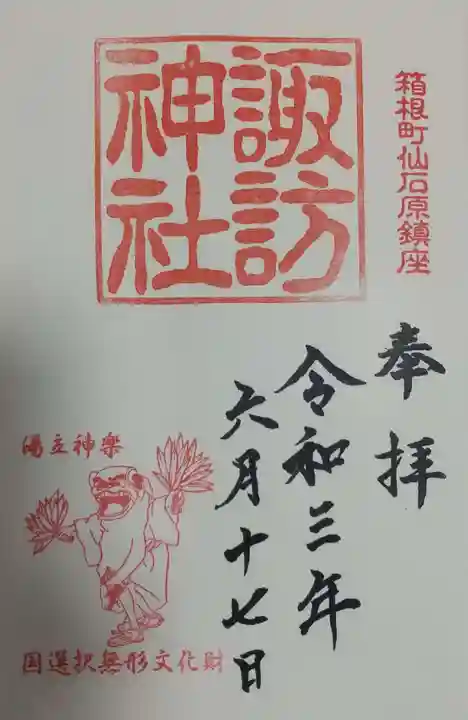 箱根町仙石原鎮座
諏訪
神社
奉拝
令和三年
六月十七日
湯立神楽
国選択無形文化財